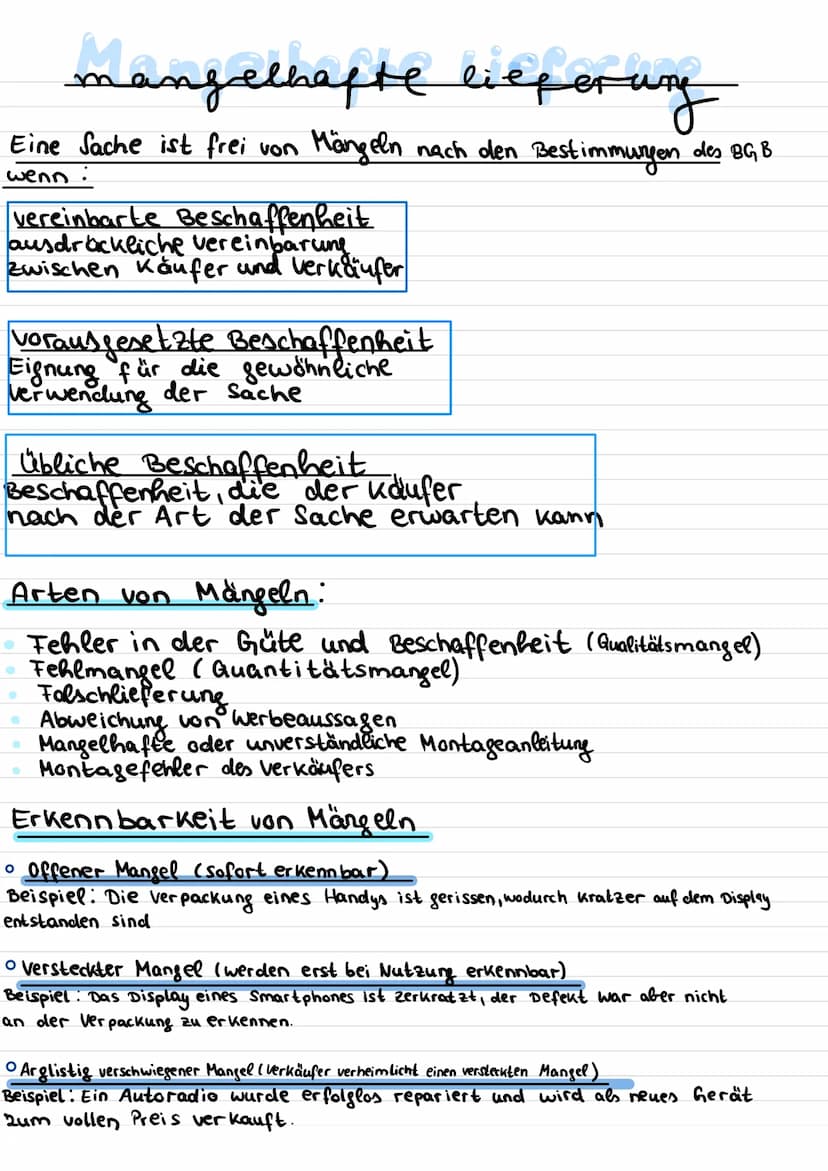 Mangelhafte Lieferung
mangelhafte lieferung
Eine Sache ist frei von Mängeln nach den Bestimmungen des BGB
wenn :
vereinbarte Beschaffenheit
ausdrückliche vereinbarung
zwischen Käufer und Verkäufer
vorausgesetzte Beschaffenheit
Eignung für die gewöhnliche
verwendung der Sache
Übliche Beschaffenheit
Beschaffenheit, die der Käufer
nach der Art der Sache erwarten kann
Arten von Mängeln:
• Fehler in der Güte und Beschaffenheit (Qualitätsmangel)
• Fehlmangel (Quantitätsmangel)
• Falschlieferung
• Abweichung von Werbeaussagen
• Mangelhafte oder unverständliche Montageanleitung
• Montagefehler des Verkäufers
Erkennbarkeit von Mängeln
° Offener Mangel (sofort erkennbar)
Beispiel: Die Verpackung eines Handys ist gerissen, wodurch Kratzer auf dem Display
entstanden sind
° Versteckter Mangel (werden erst bei Nutzung erkennbar)
Beispiel: Das Display eines Smartphones ist zerkratzt, der Defekt war aber nicht
an der Verpackung zu erkennen.
° Arglistig verschwiegener Mangel (Verkäufer verheimlicht einen versteckten Mangel)
Beispiel: Ein Autoradio wurde erfolglos repariert und wird als neues Gerät
zum vollen Preis verkauft.